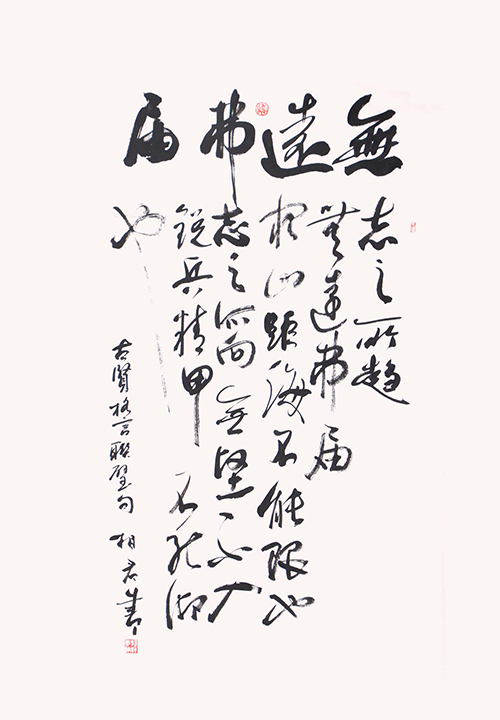 無遠弗届
志之所趨
無遠弗届
穷山距海不能限也
志之所向無堅不入
銳兵精甲不能御
也
古賢格言聯璧句 相君書